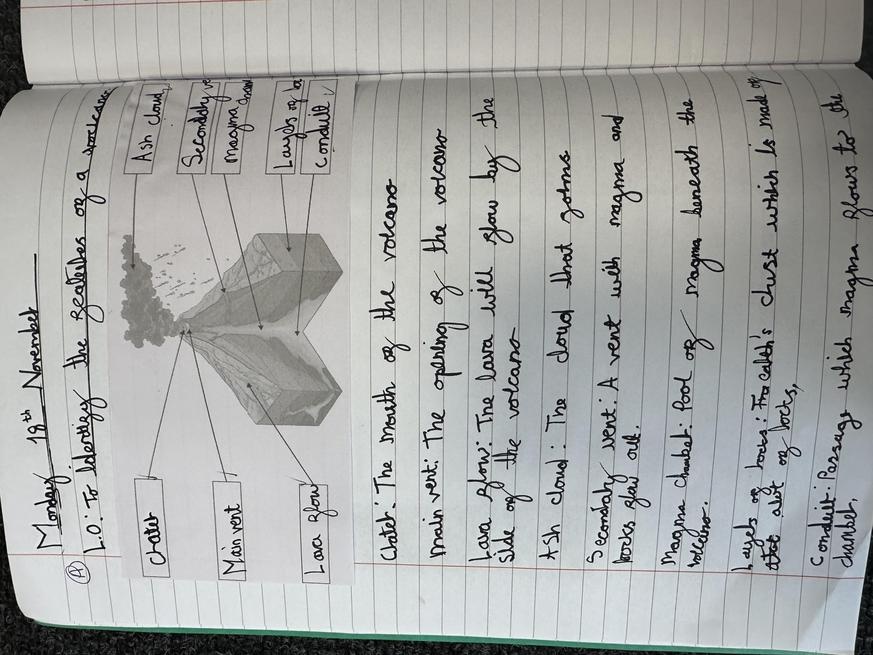 Monday 18th November
(A) L.O: To Identify the features of a volcano
Crater
Main vent
Lava flow
Ash cloud
Secondary ve
magma cham
Layers of
Conduit
Crater: The mouth of the volcano
main vent: The opening of the volcano
Lava flow: The lava will flow by the
side of the volcano
Ash cloud: The cloud that forms
Secondary vent: A vent with magma and
rocks flow out.
Magma chamber: Pool of magma beneath the
volcano.
Layers of rocks: The earth's crust which is made of
that alot of rocks,
Conduit: Passage which magma flows to the
chamber,